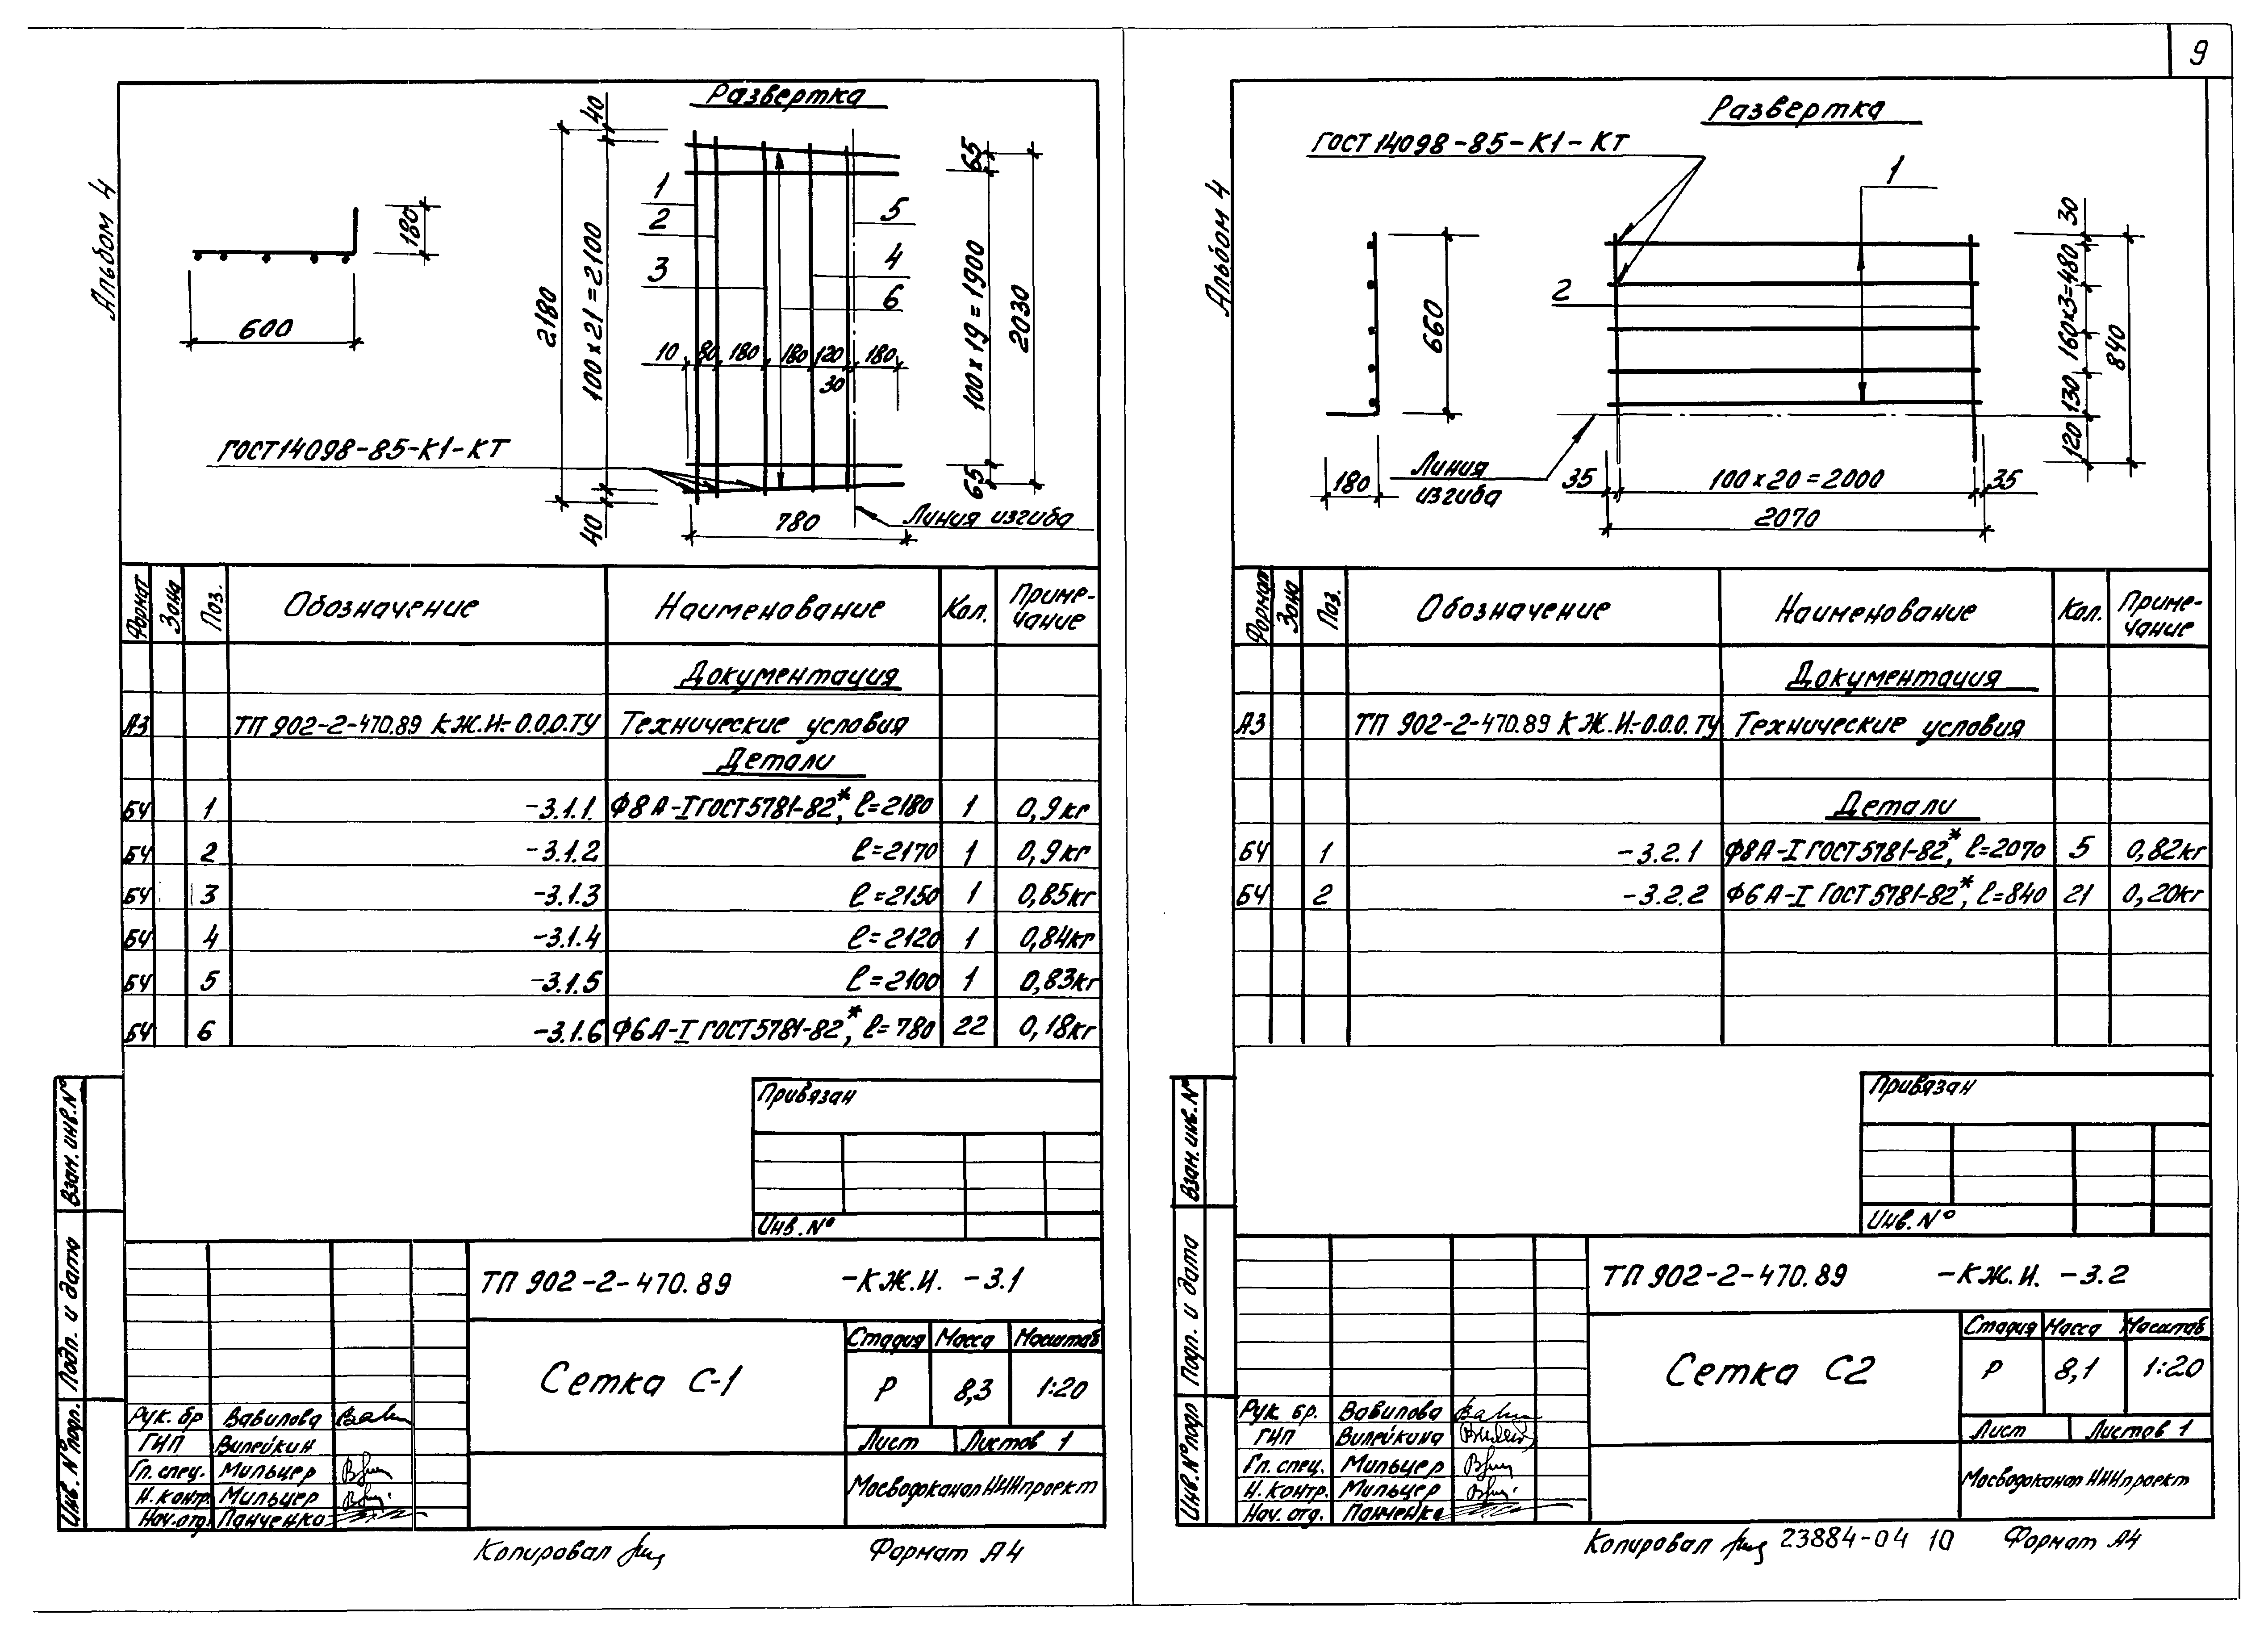 9
Альбом 4
Развертка
40
2180
100х21=2100
40
1
2
3
5
4
6
65
100х19=1900
65
2030
180
600
10 80 180 180 120 180
30
ГОСТ 14098-85-К1-КТ
780
Линия изгиба
Формат Зона Поз. Обозначение Наименование Кол. Приме-
чание
Документация
А3 ТП 902-2-470.89 КЖ.И.-0.0.0.ТУ Технические условия
Детали
БЧ 1 -3.1.1. Ф8 А-I ГОСТ 5781-82*, ℓ=2180 1 0,9кг
БЧ 2 -3.1.2 ℓ=2170 1 0,9кг
БЧ 3 -3.1.3 ℓ=2150 1 0,85кг
БЧ 4 -3.1.4 ℓ=2120 1 0,84кг
БЧ 5 -3.1.5 ℓ=2100 1 0,83кг
БЧ 6 -3.1.6 Ф6 А-I ГОСТ 5781-82*, ℓ=780 22 0,18кг
Привязан
Инв. №
Взам. инв. №
Подп. и дата
Инв. № подл.
ТП 902-2-470.89 -КЖ.И. -3.1
Сетка С-1
Стадия Масса Масштаб
Р 8,3 1:20
Лист Листов 1
МосводоканалНИИпроект
Рук. бр Вавилова
ГИП Вилейкин
Гл. спец. Мильцер
Н. контр. Мильцер
Нач. отд. Панченко
Копировал
Формат А4
Альбом 4
Развертка
ГОСТ 14098-85-К1-КТ
1
2
660
180
30
160х3=480
130
120
840
Линия
изгиба
35 100х20=2000 35
2070
Формат Зона Поз. Обозначение Наименование Кол. Приме-
чание
Документация
А3 ТП 902-2-470.89 КЖ.И.-0.0.0.ТУ Технические условия
Детали
БЧ 1 -3.2.1 Ф8 А-I ГОСТ 5781-82*, ℓ=2070 5 0,82кг
БЧ 2 -3.2.2 Ф6 А-I ГОСТ 5781-82*, ℓ=840 21 0,20кг
Привязан
Инв. №
Взам. инв. №
Подп. и дата
Инв. № подл
ТП 902-2-470.89 -КЖ.И. -3.2
Сетка С2
Стадия Масса Масштаб
Р 8,1 1:20
Лист Листов 1
МосводоканалНИИпроект
Рук бр. Вавилова
ГИП Вилейкина
Гл. спец. Мильцер
Н. контр. Мильцер
Нач. отд. Панченко
Копировал 23884-04 10 Формат А4